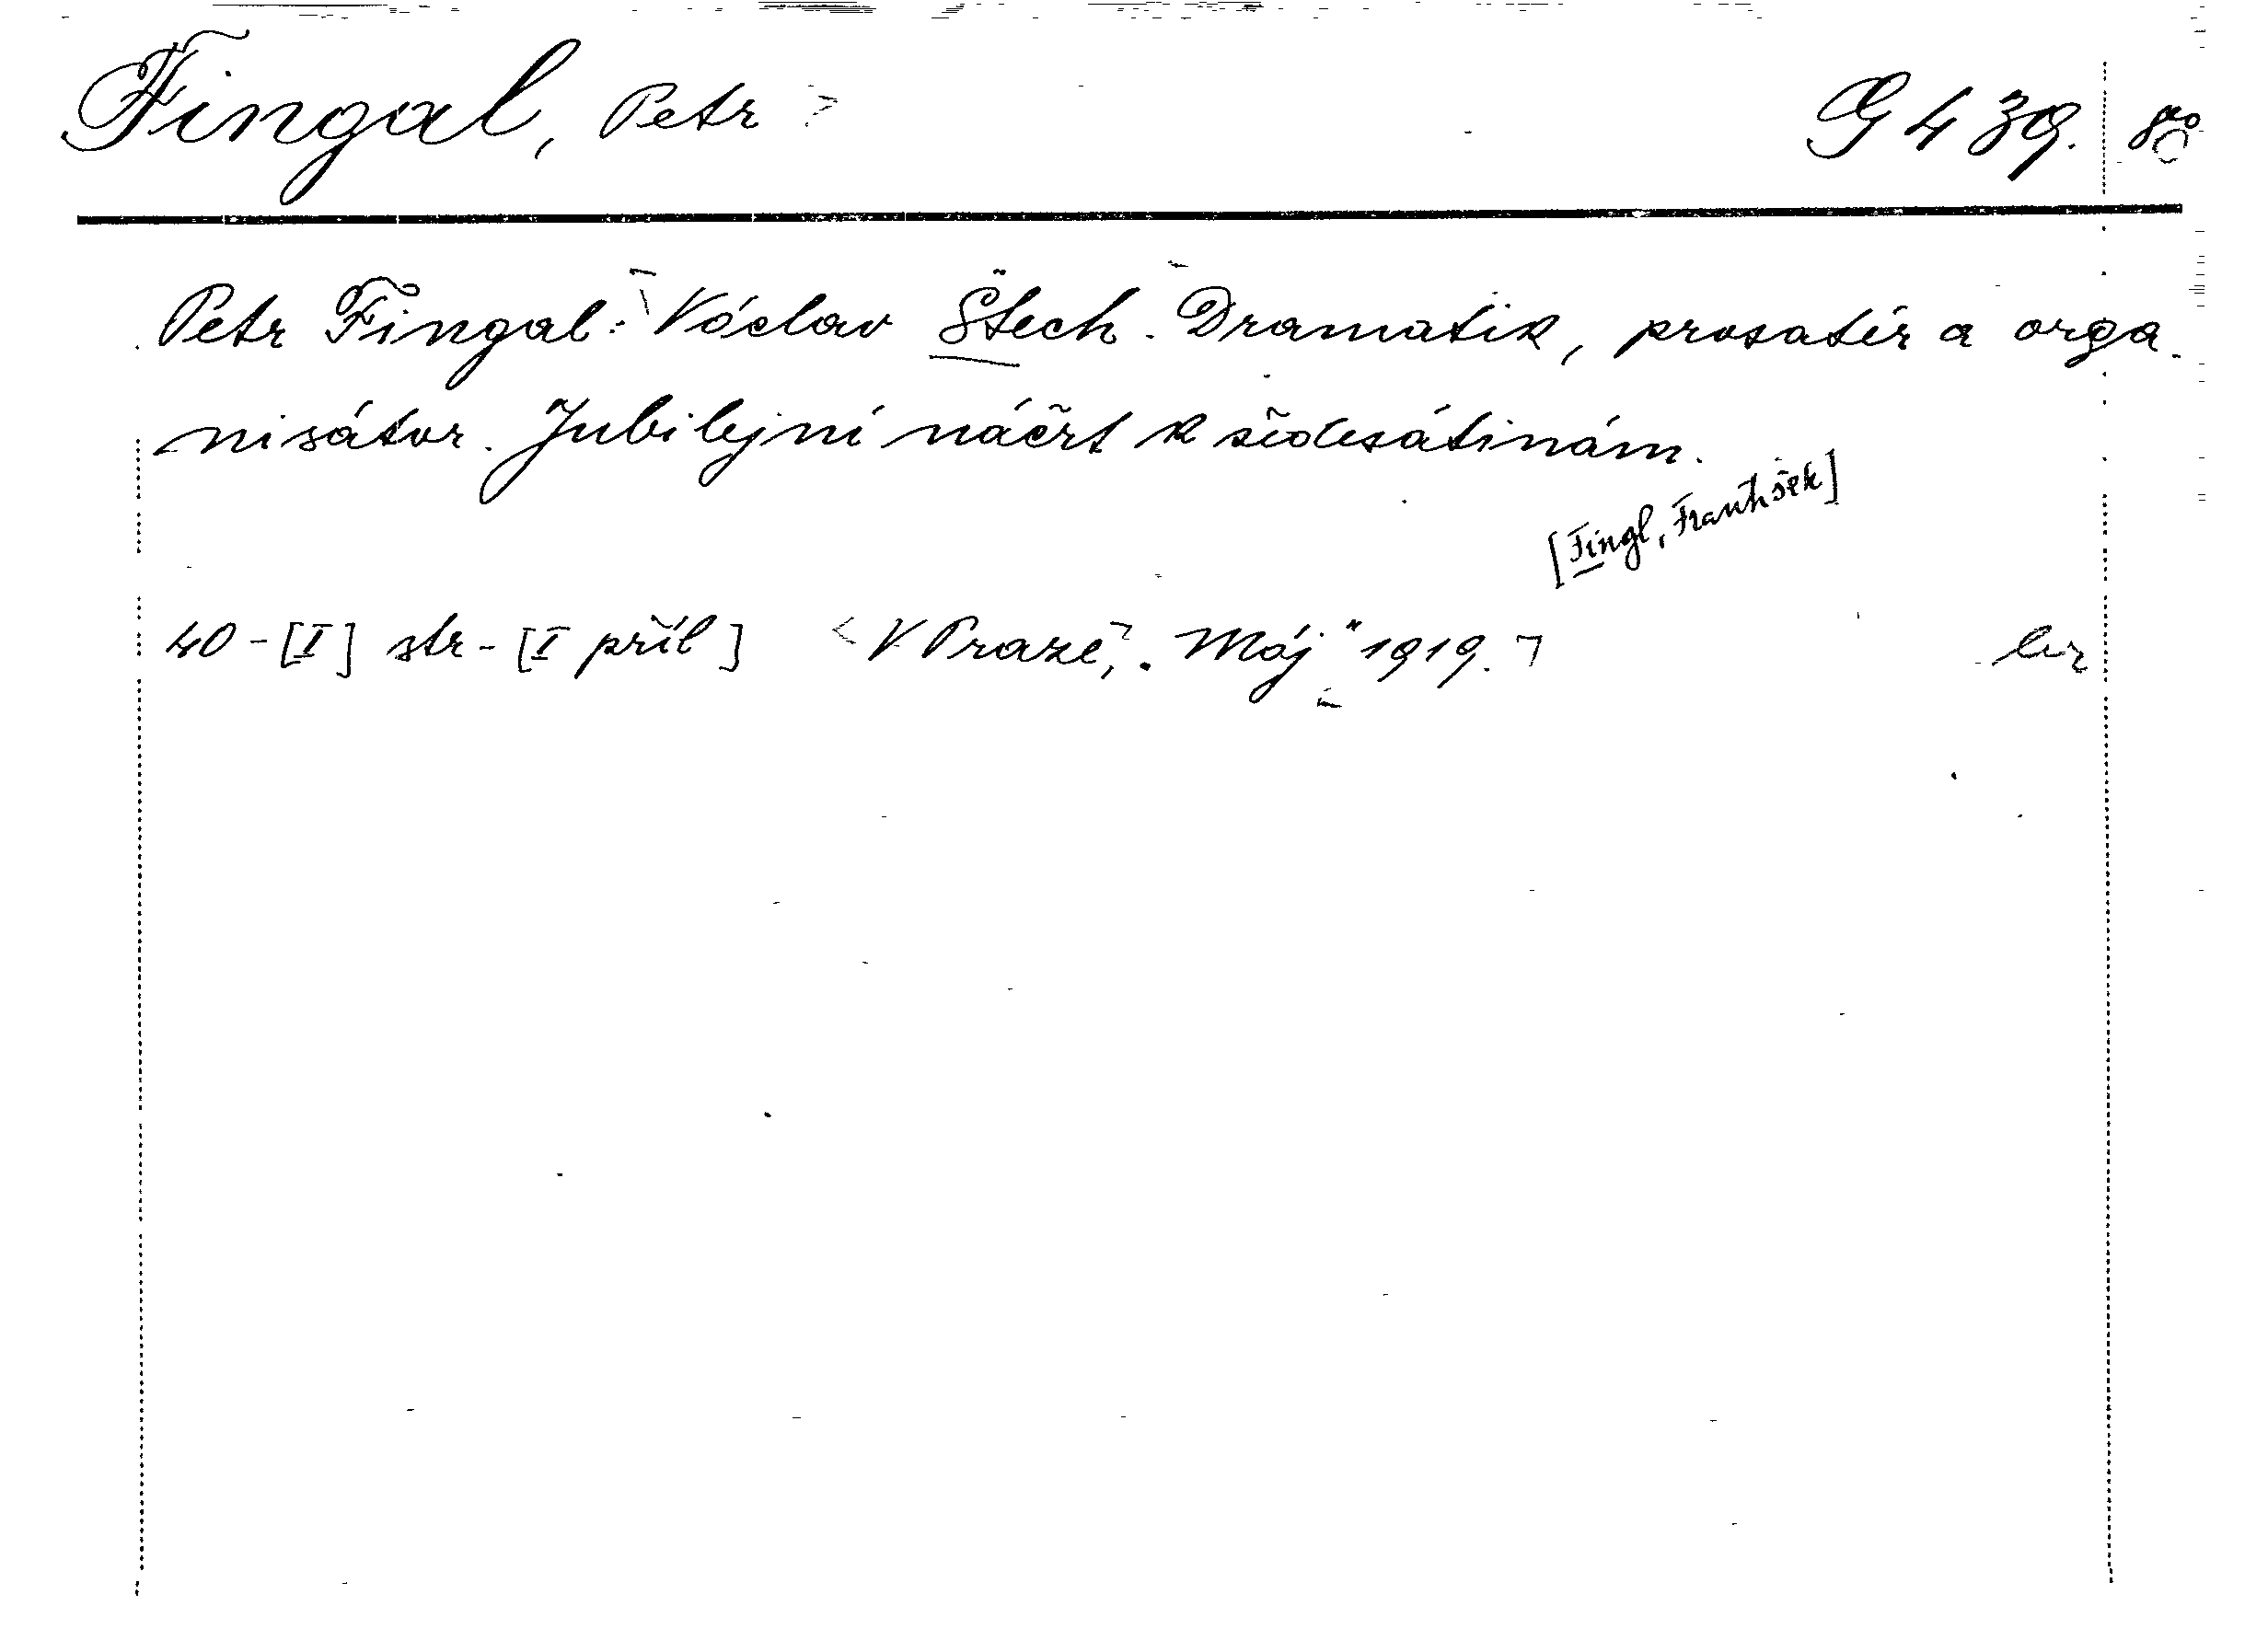 Fingal, Petr G 439.
Petr Fingal: Václav Štech. Dramatik, prosatér a orga-
nisátor. Jubilejní náčrt k šedesátinám.
[Fingl, František]
40-[I] str-[I příl] V Praze, "Máj" 1919.